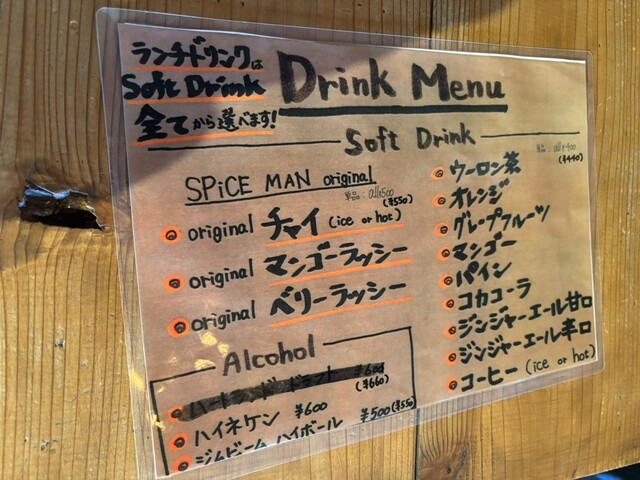 ランチドリンクは
Soft Drink
全てから選べます!
Drink Menu
Soft Drink
SPiCE MAN original
単品:all¥500
(¥550)
original チャイ (ice or hot)
original マンゴーラッシー
original ベリーラッシー
単品:all¥400
(¥440)
ウーロン茶
オレンジ
グレープフルーツ
マンゴー
パイン
コカコーラ
ジンジャーエール甘口
ジンジャーエール辛口
コーヒー (ice or hot)
Alcohol
¥600
(¥660)
ハイネケン ¥600
ジムビームハイボール ¥500 (¥550)